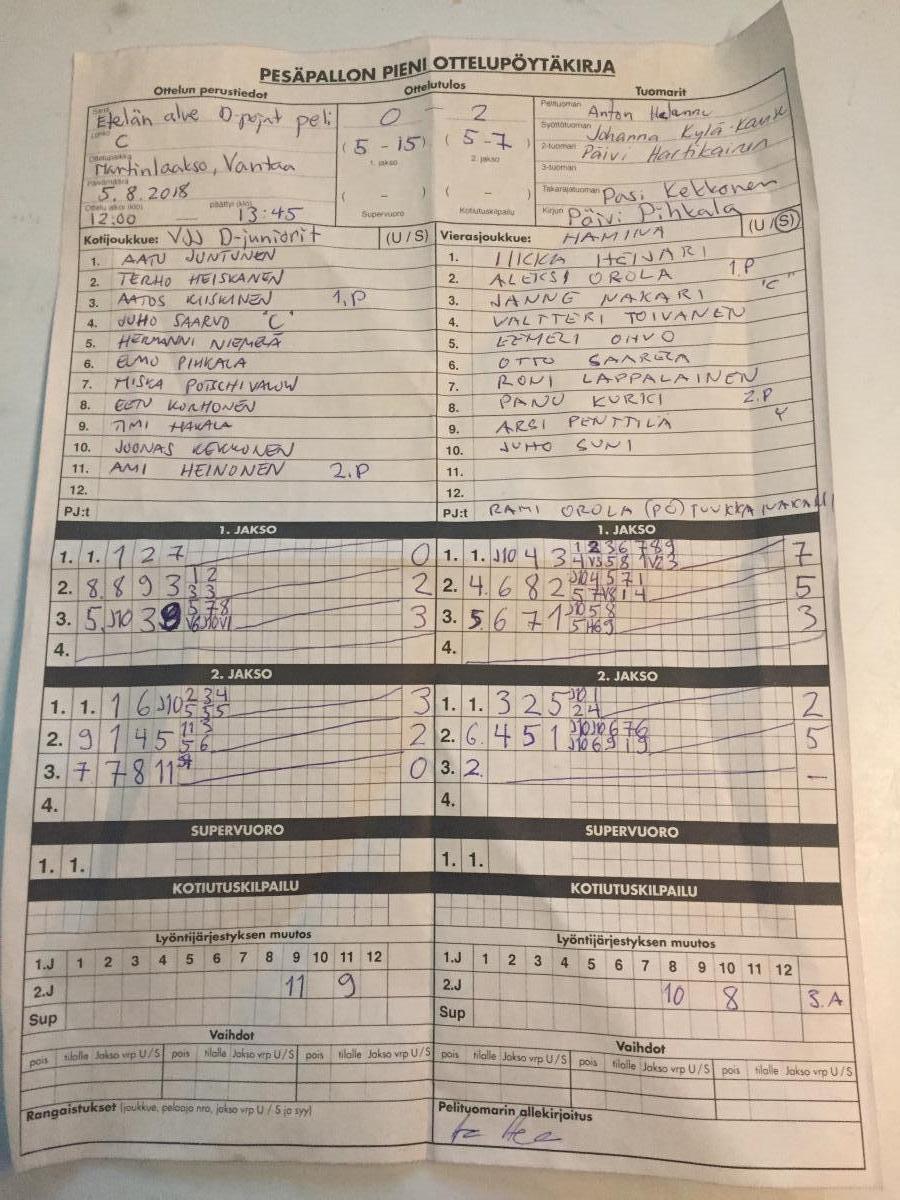 PESÄPALLON PIENI OTTELUPÖYTÄKIRJA
Ottelun perustiedot Ottelutulos Tuomarit
Sarja Etelän alve D-pojat peli
Lohko C
Ottelupaikka Martinlaakso, Vantaa
Päivämäärä 5.8.2018
Ottelu alkoi (klo) 12:00 — päättyi (klo) 13:45
0 - 2
(5 - 15) (5 - 7)
1. jakso 2. jakso
( - ) ( - )
Supervuoro Kotiutuskilpailu
Pelituomari Anton
Syöttötuomari Johanna Kylä-
2-tuomari Päivi Hartikainen
3-tuomari
Takarajatuomari Pasi Kekkonen
Kirjuri Päivi Pihkala
Kotijoukkue: VJJ D-juniorit (U / S)
1. AATU JUNTUNEN
2. TERHO HEISKANEN
3. AATOS KIISKINEN 1.P
4. JUHO SAARVO "C"
5. HERMANNI NIEMELÄ
6. ELMO PIHKALA
7. MISKA
8. EETU KORHONEN
9. TIMI HAKALA
10. JOONAS KEKKONEN
11. AMI HEINONEN 2.P
12.
PJ:t
Vierasjoukkue: HAMINA (U / S)
1. IIKKA HEIVARI
2. ALEKSI OROLA 1.P
3. JANNE NAKARI "C"
4. VALTTERI TOIVANEN
5. EEMELI OHVO
6. OTTO SAARELA
7. RONI LAPPALAINEN
8. PANU KURKI 2.P
9. ARSI PENTTILÄ Y
10. JUHO SUNI
11.
12.
PJ:t RAMI OROLA (PÖ) TUUKKA NAKARI
1. JAKSO
1. 1. 1 2 7 0
2. 8. 8 9 3 1 2 3 3 2
3. 5. J10 3 9 5 7 8 3
4.
1. JAKSO
1. 1. J10 4 3 1 2 3 6 7 8 9 7
2. 4. 6 8 2 J10 4 5 7 1 5
3. 5. 6 7 1 J10 5 8 3
4.
2. JAKSO
1. 1. 1 6 J10 2 3 4 5 5 5 3
2. 9 1 4 5 11 3 5 6 2
3. 7. 7 8 11 0
4.
2. JAKSO
1. 1. 3 2 5 J10 1 2 4 2
2. 6. 4 5 1 J10 J10 6 7 6 J10 6 9 1 9 5
3. 2. –
4.
SUPERVUORO
1. 1.
SUPERVUORO
1. 1.
KOTIUTUSKILPAILU
KOTIUTUSKILPAILU
Lyöntijärjestyksen muutos
1.J 1 2 3 4 5 6 7 8 9 10 11 12
2.J 11 9
Sup
Lyöntijärjestyksen muutos
1.J 1 2 3 4 5 6 7 8 9 10 11 12
2.J 10 8 3.A
Sup
Vaihdot
pois tilalle Jakso vrp U / S pois tilalle Jakso vrp U / S pois tilalle Jakso vrp U / S
Vaihdot
pois tilalle Jakso vrp U / S pois tilalle Jakso vrp U / S pois tilalle Jakso vrp U / S
Rangaistukset (joukkue, pelaaja nro, jakso vrp U / S ja syy)
Pelituomarin allekirjoitus